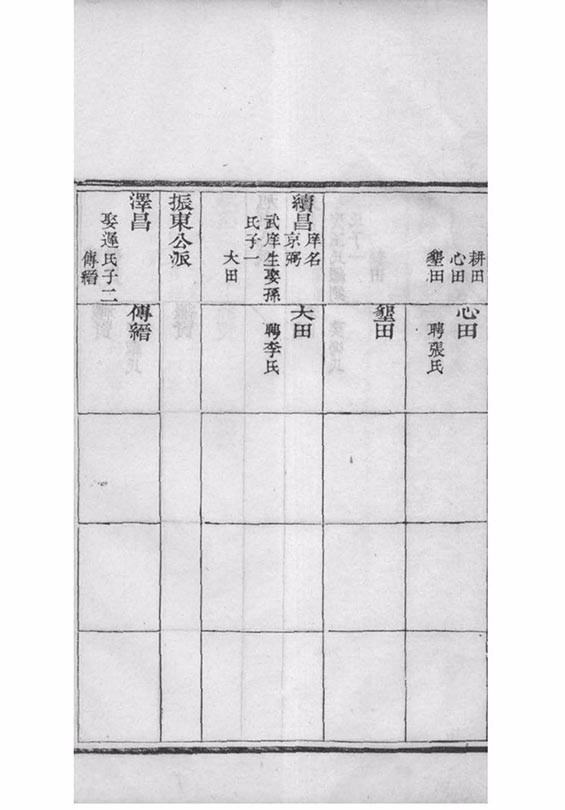 耕田
心田
墾田
心田
聘張氏
墾田
續昌
庠名
京弼
武庠生娶孫
氏子一
大田
大田
聘李氏
振東公派
澤昌
娶遲氏子二
傳縉
傳縉